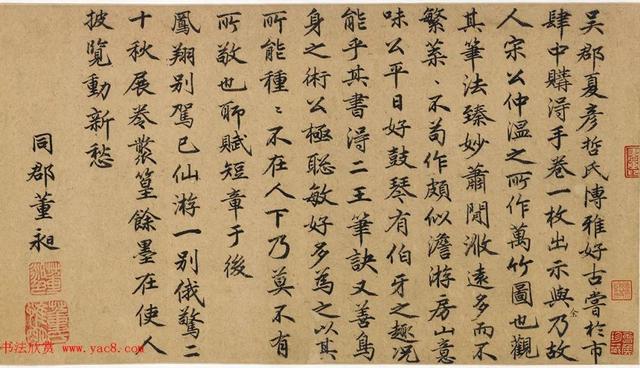 吳郡夏彥哲氏博雅好古嘗於市
肆中購得手卷一枚出示與余乃故
人宋公仲温之所作萬竹圖也觀
其筆法臻妙蕭閒淑遠多而不
繁葉、不苟作頗似澹游房山意
味公平日好鼓琴有伯牙之趣況
能乎其書得二王筆訣又善鳥
身之術公極聰敏好多為之以其
所能種、不在人下乃莫不有
所敬也聊賦短章于後
鳳翔別駕已仙游一別俄驚二
十秋展卷叢篁餘墨在使人
披覽動新愁
同郡董昶
书法欣赏 www.yac8.com